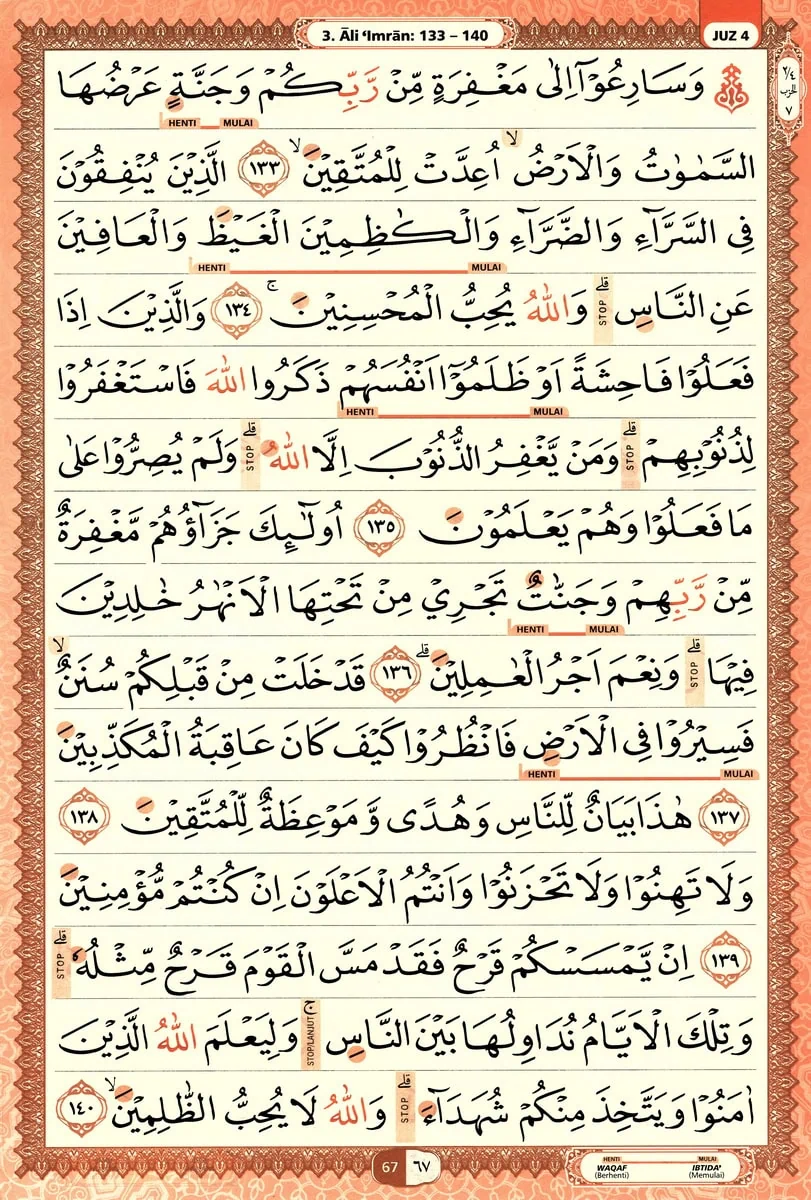 3. Āli ‘Imrān: 133 – 140
JUZ 4
٢/٤
الحزب
٧
وَسَارِعُوْٓا اِلٰى مَغْفِرَةٍ مِّنْ رَّبِّكُمْ وَجَنَّةٍ عَرْضُهَا
HENTI MULAI
السَّمٰوٰتُ وَالْاَرْضُۙ اُعِدَّتْ لِلْمُتَّقِيْنَۙ ١٣٣ الَّذِيْنَ يُنْفِقُوْنَ
فِى السَّرَّاۤءِ وَالضَّرَّاۤءِ وَالْكٰظِمِيْنَ الْغَيْظَ وَالْعَافِيْنَ
HENTI MULAI
عَنِ النَّاسِۗ STOP وَاللّٰهُ يُحِبُّ الْمُحْسِنِيْنَۚ ١٣٤ وَالَّذِيْنَ اِذَا
فَعَلُوْا فَاحِشَةً اَوْ ظَلَمُوْٓا اَنْفُسَهُمْ ذَكَرُوا اللّٰهَ فَاسْتَغْفَرُوْا
HENTI MULAI
لِذُنُوْبِهِمْۗ STOP وَمَنْ يَّغْفِرُ الذُّنُوْبَ اِلَّا اللّٰهُۗ STOP وَلَمْ يُصِرُّوْا عَلٰى
مَا فَعَلُوْا وَهُمْ يَعْلَمُوْنَ ١٣٥ اُولٰۤىِٕكَ جَزَاۤؤُهُمْ مَّغْفِرَةٌ
مِّنْ رَّبِّهِمْ وَجَنّٰتٌ تَجْرِيْ مِنْ تَحْتِهَا الْاَنْهٰرُ خٰلِدِيْنَ
HENTI MULAI
فِيْهَاۗ STOP وَنِعْمَ اَجْرُ الْعٰمِلِيْنَۗ ١٣٦ قَدْ خَلَتْ مِنْ قَبْلِكُمْ سُنَنٌۙ
فَسِيْرُوْا فِى الْاَرْضِ فَانْظُرُوْا كَيْفَ كَانَ عَاقِبَةُ الْمُكَذِّبِيْنَ
HENTI MULAI
١٣٧ هٰذَا بَيَانٌ لِّلنَّاسِ وَهُدًى وَّمَوْعِظَةٌ لِّلْمُتَّقِيْنَ ١٣٨
وَلَا تَهِنُوْا وَلَا تَحْزَنُوْا وَاَنْتُمُ الْاَعْلَوْنَ اِنْ كُنْتُمْ مُّؤْمِنِيْنَ
١٣٩ اِنْ يَّمْسَسْكُمْ قَرْحٌ فَقَدْ مَسَّ الْقَوْمَ قَرْحٌ مِّثْلُهٗۗ STOP
وَتِلْكَ الْاَيَّامُ نُدَاوِلُهَا بَيْنَ النَّاسِۚ STOP/LANJUT وَلِيَعْلَمَ اللّٰهُ الَّذِيْنَ
اٰمَنُوْا وَيَتَّخِذَ مِنْكُمْ شُهَدَاۤءَۗ STOP وَاللّٰهُ لَا يُحِبُّ الظّٰلِمِيْنَۙ ١٤٠
67 ٦٧
HENTI MULAI
WAQAF IBTIDA’
(Berhenti) (Memulai)